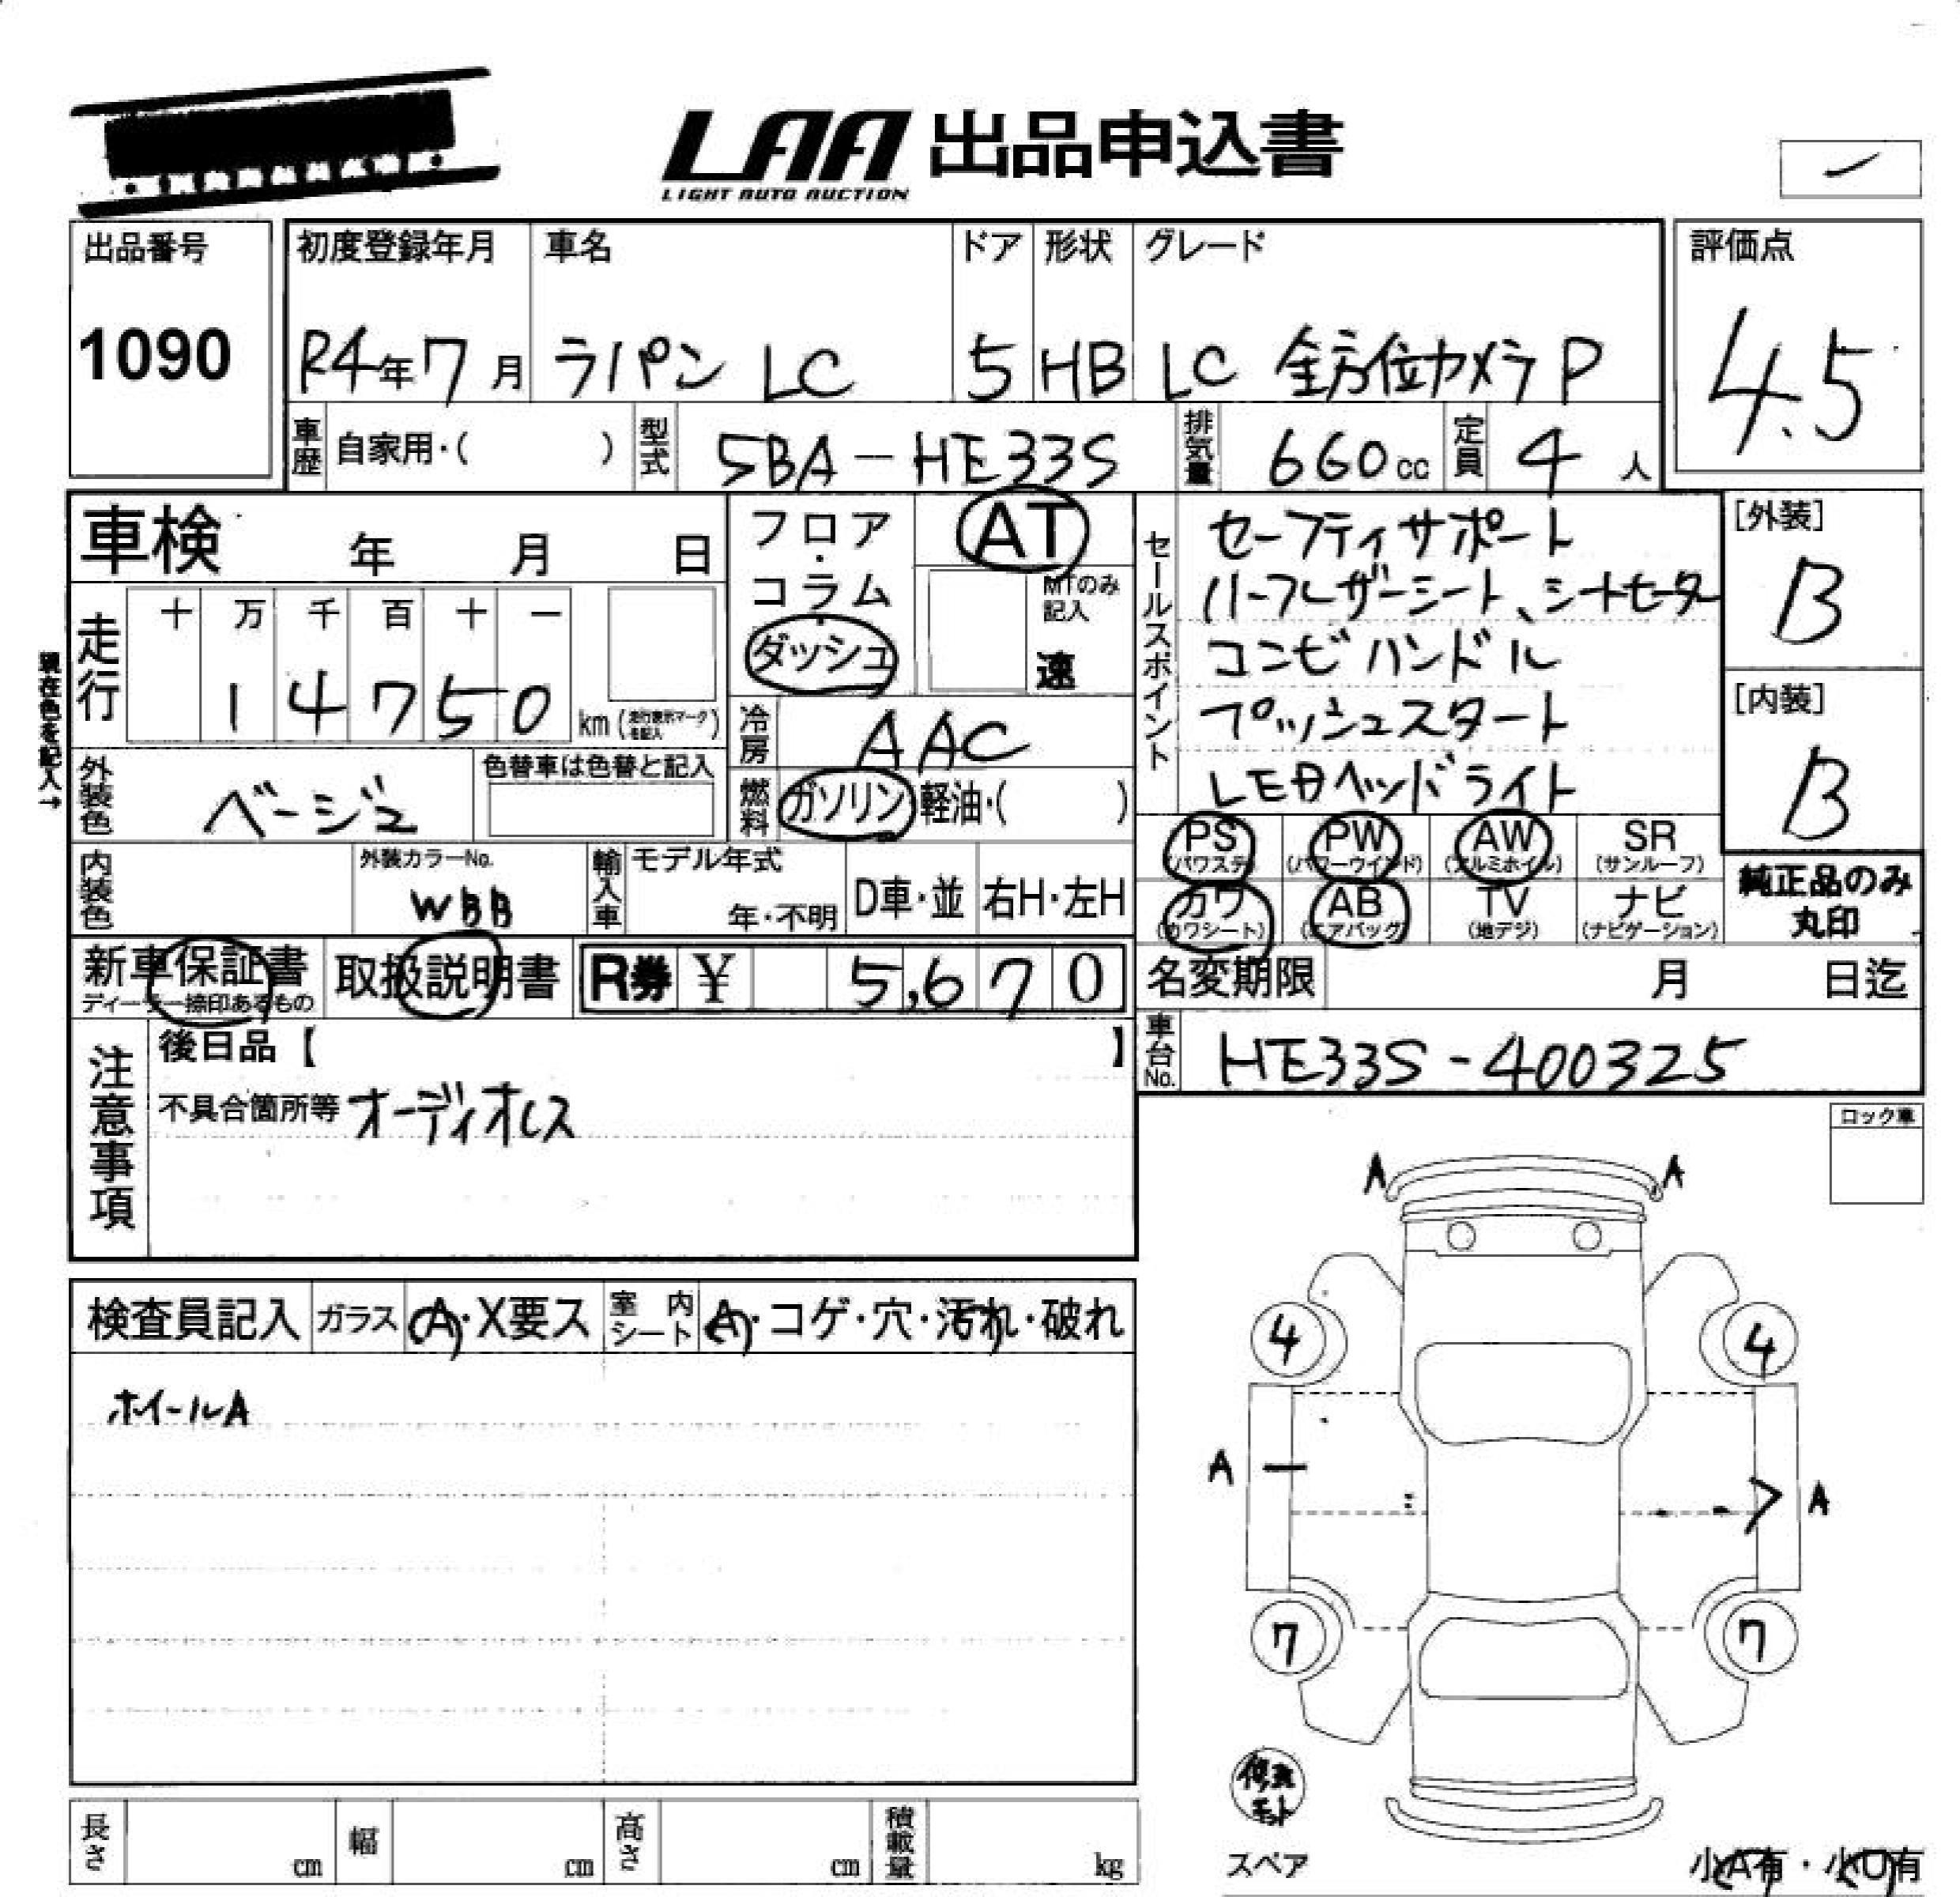 LAA 出品申込書
LIGHT AUTO AUCTION
出品番号
1090
初度登録年月
R4年7月
車名
ラパン LC
ドア
5
形状
HB
グレード
LC 全方位カメラP
評価点
4.5
車歴 自家用・( )
型式 5BA-HE33S
排気量 660cc
定員 4人
車検 年 月 日
フロア・コラム・ダッシュ
AT
MTのみ記入
速
現在色を記入→
走行 十 万 千 百 十 一
14750 km (走行表示マークを記入)
冷房 AAC
外装色 ベージュ
色替車は色替と記入
燃料 ガソリン 軽油・( )
内装色
外装カラーNo.
WBB
輸入車 モデル年式
年・不明
D車・並
右H・左H
新車保証書
ディーラー捺印あるもの
取扱説明書
R券 ¥ 5,670
セールスポイント
セーフティサポート
ハーフレザーシート、シートヒーター
コンビハンドル
プッシュスタート
LEDヘッドライト
[外装]
B
[内装]
B
PS (パワステ)
PW (パワーウインド)
AW (アルミホイル)
SR (サンルーフ)
カワ (カワシート)
AB (エアバッグ)
TV (地デジ)
ナビ (ナビゲーション)
純正品のみ
丸印
名変期限 月 日迄
車台No. HE33S-400325
注意事項
後日品【 】
不具合箇所等 オーディオレス
ロック車
検査員記入
ガラス A・X要ス
室内シート A・コゲ・穴・汚れ・破れ
ホイールA
A
A
4
4
A
A
7
7
修理キット
スペア
小A有・小U有
長さ cm
幅 cm
高さ cm
積載量 kg